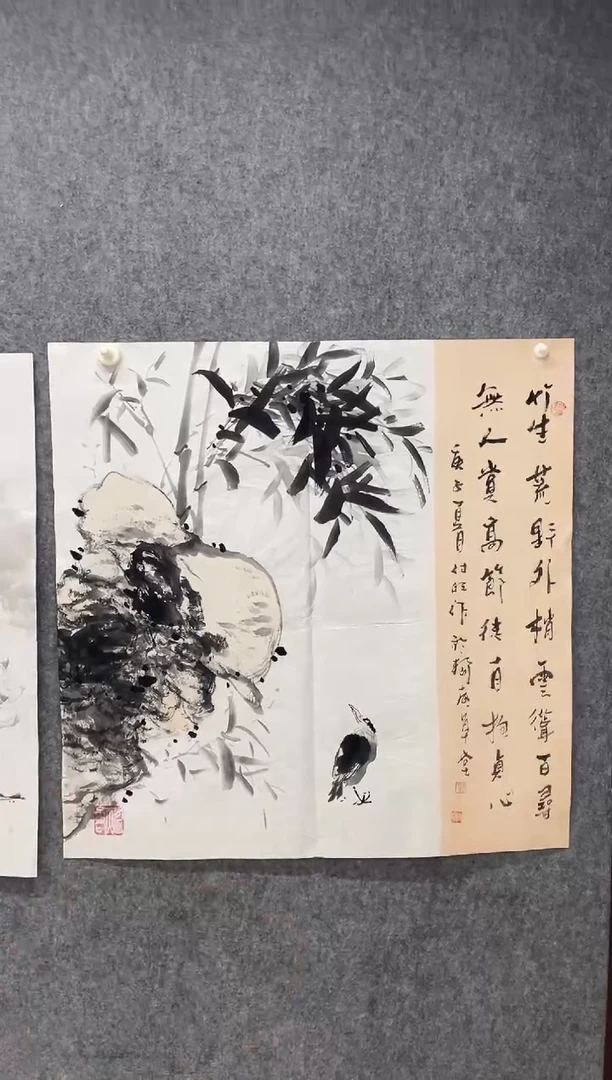 竹生荒野外梢雲聳百尋
無人賞高節徒自抱貞心
庚子夏月付作於草堂